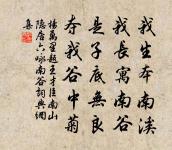 我生本南溪
我長寓南谷
是子底無良
奪我谷中菊
楊萬里題王才臣南山
隱居六咏南谷詞典網
集